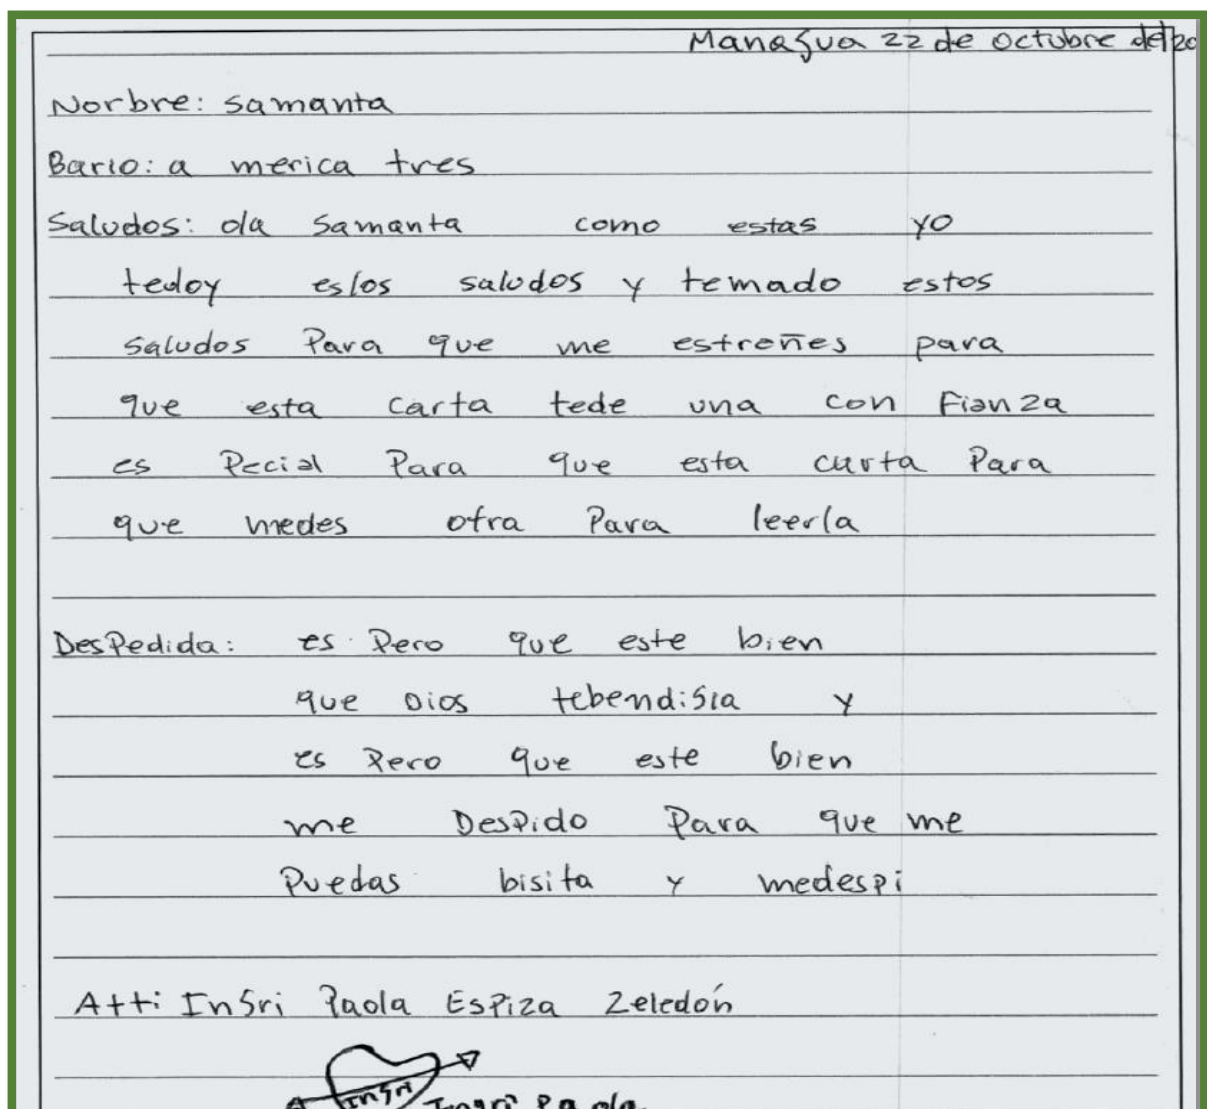 Managua 22 de octubre del 20
Norbre: samanta
Bario: a merica tres
Saludos: ola Samanta como estas yo
tedoy eslos saludos y temado estos
saludos Para que me estrañes para
que esta carta tede una con Fianza
es Pecial Para que esta carta Para
que medes otra Para leerla
DesPedida: es Pero que este bien
que Dios tebendisia y
es Pero que este bien
me DesPido Para que me
Puedas bisita y medespi
Atti Insri Paola EsPiza Zeledón
Insri
Insri Paola